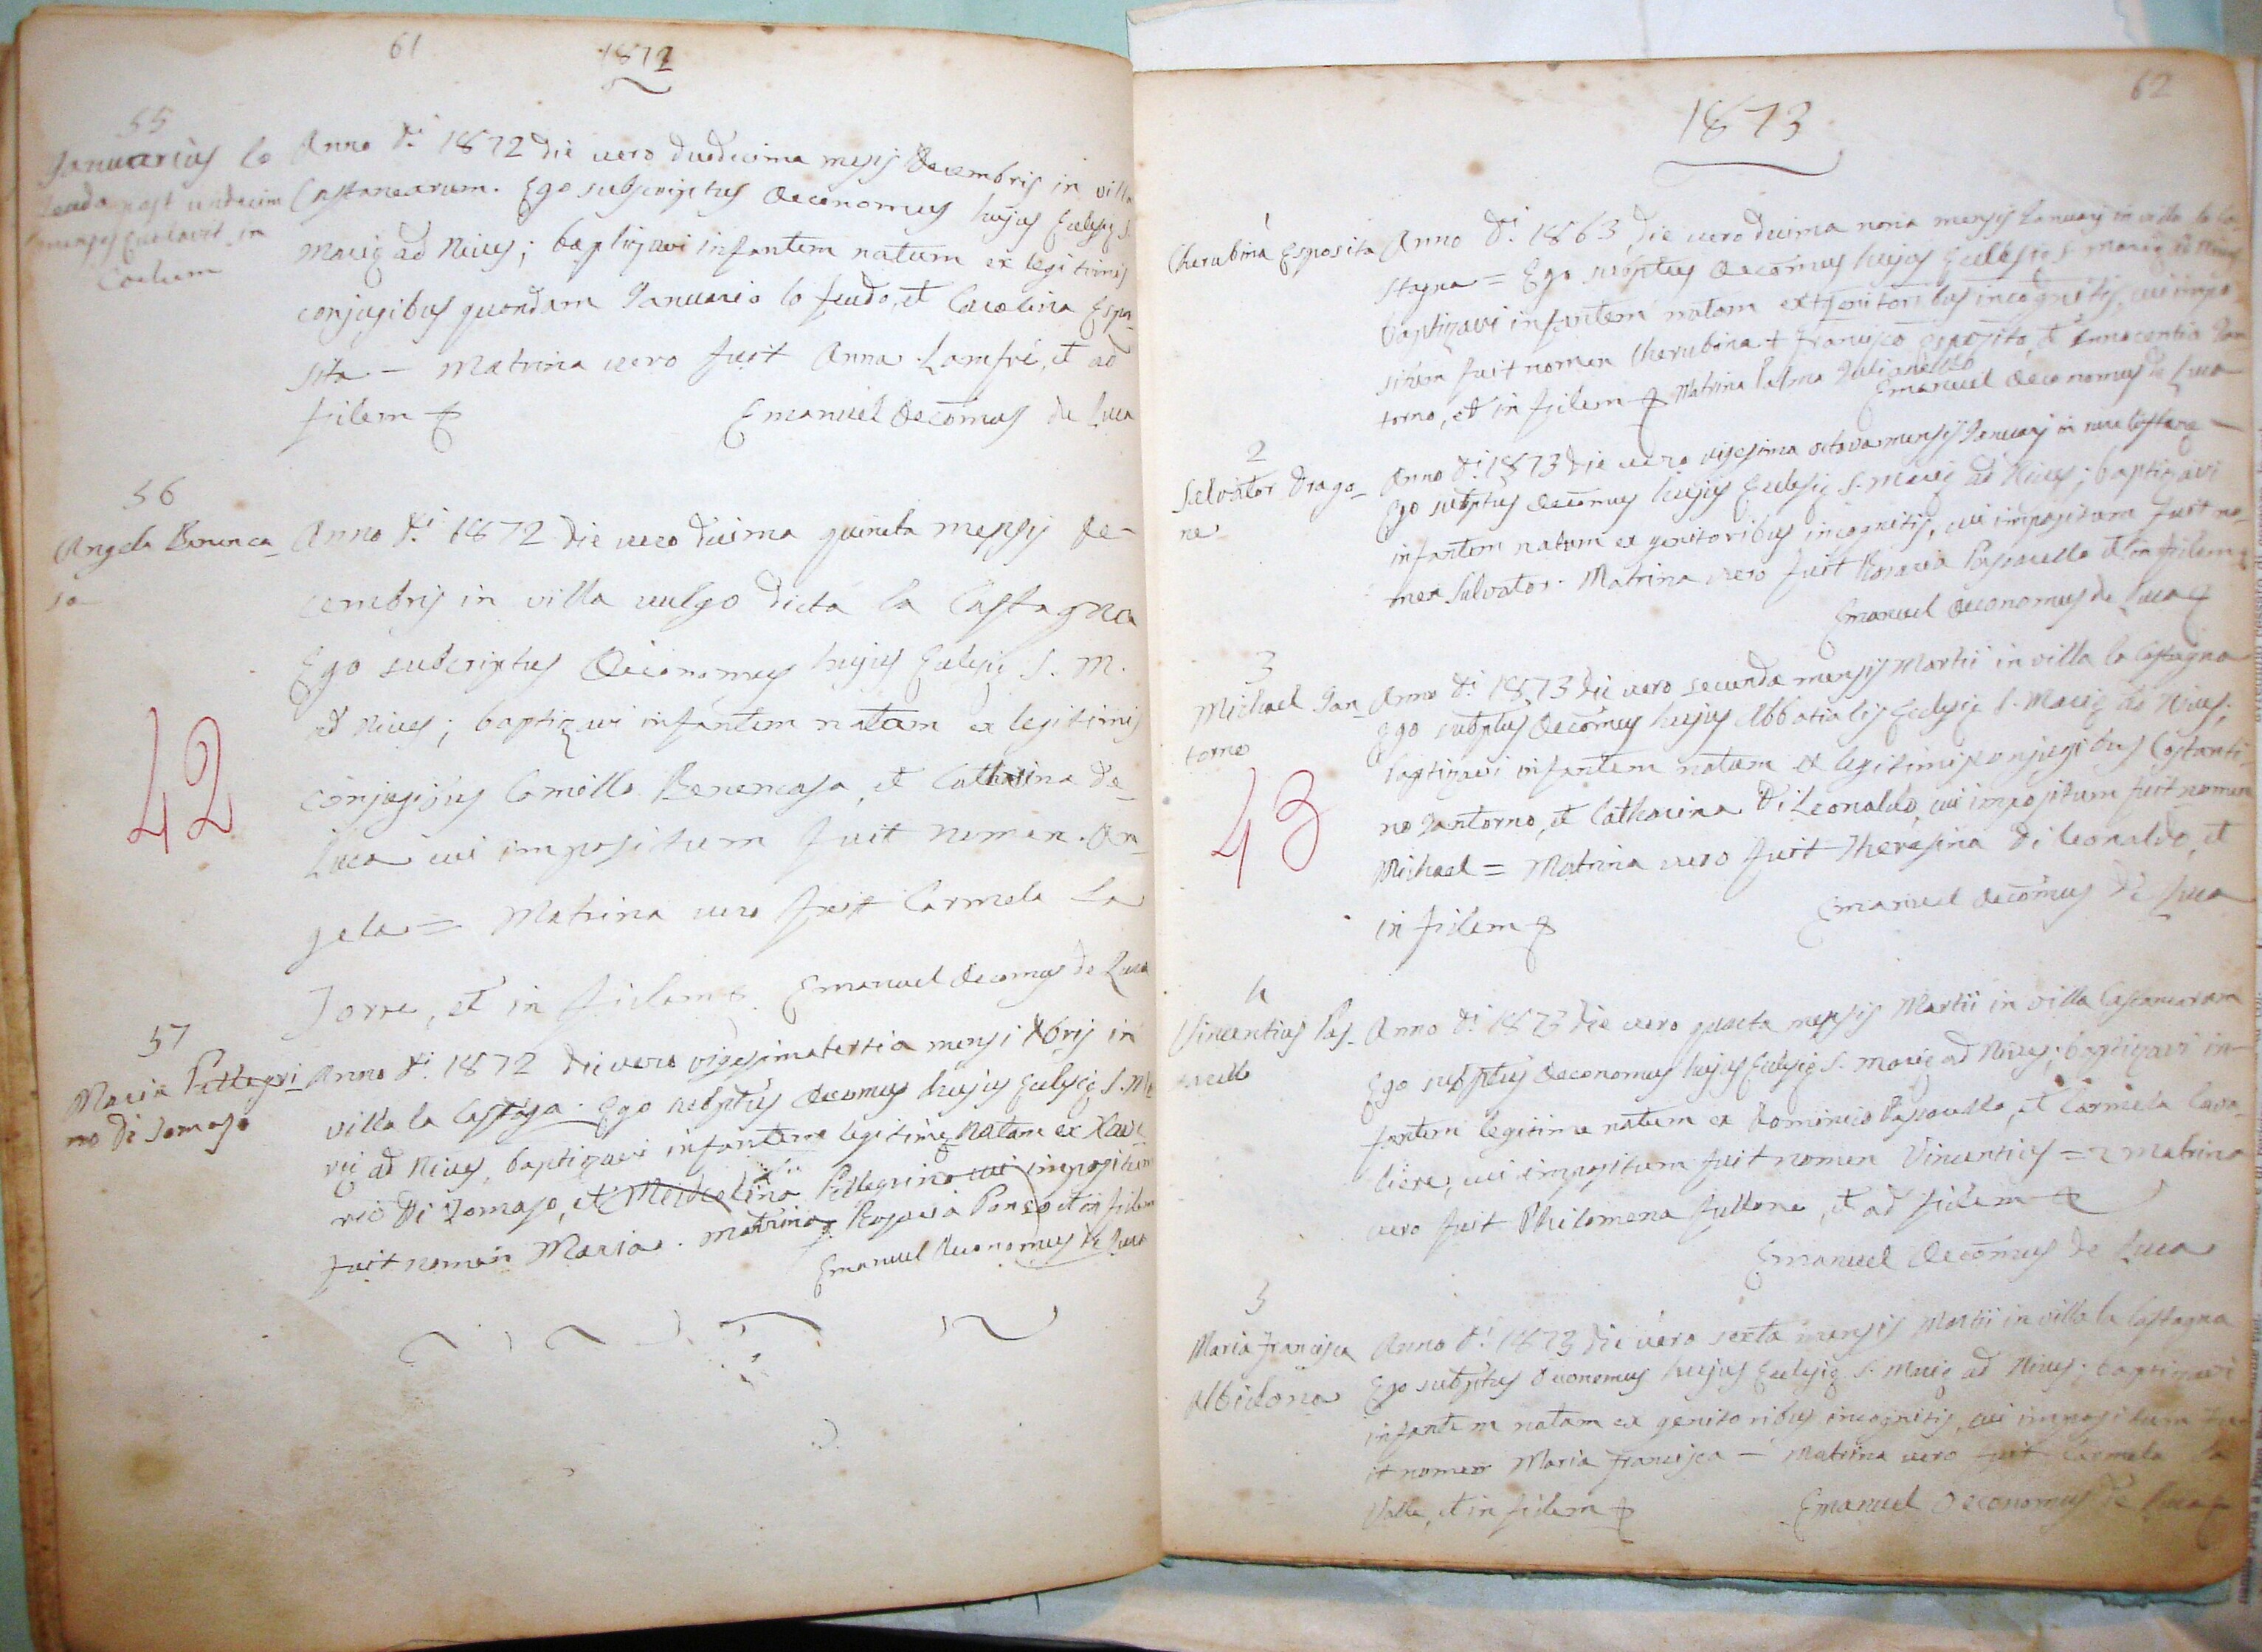 61
1872
55
Januarius lo
feudo post undecim
menses evolavit in
Coelum
Anno D.i 1872 die vero duodecima mesis Decembris in villa
Castanearum. Ego subscriptus Oeconomus hujus Eclesię S.
Marię ad Nives; baptizavi infantem natum ex legitimis
conjugibus quondam Januario lo feudo, et Carolina Espo-
sita — Matrina vero fuit Anna Lanfré, et ad
fidem
Emanuel Oecōmus de Luca
56
Angela Benenca-
sa
Anno D.i 1872 die vero decima quinta mensis De-
cembris in villa vulgo dicta la Castagna
Ego subcriptus Oeconomus hujus Eclesię S. M.
ad Nives; baptizavi infantem natam ex legitimis
conjugibus Camillo Benencasa, et Catharina de
Luca cui impositum fuit nomen An-
gela = Matrina vero fuit Carmela La
Torre, et in fidem Emanuel Oecomus de Luca
42
57
Maria Pellegri-
no di Tomaso
Anno D.i 1872 die vero vigesimatertia mensi Xbris in
villa la Castaga. Ego subptus Oecomus hujus Eclesię S. Ma
rię ad Nives, baptizavi infantem legitime natam ex Xave-
rio Di Tomaso, et Pellegrino cui impositum
fuit nomen Maria. Matrina Rosaria Ponso et in fidem
Emanuel Oeconomus de Luca
62
1873
1
Cherubina Esposita
Anno D.i 1863 die vero decima nona mensis January in villa la Ca-
stagna = Ego subptus Oecōmus hujus Eclesię S. Marię ad Nives
baptizavi infantem natam ex genitoribus incognitis, cui impo-
situm fuit nomen Cherubina + Francisco esposito, et Innocentia Jan
torno, et in fidem Matrina Palma Julianello
Emanuel Oeconomus de Luca
2
Salvator Drago-
ne
Anno D.i 1873 die vero vigesima octava mensis January in rure Castanę —
Ego subptus Oecōmus hujus Eclesię S. Marię ad Nives; baptizavi
infantem natum ex genitoribus incognitis, cui impositum fuit no-
men Salvator. Matrina vero fuit Rosaria Pascuello et in fidem
Emanuel Oeconomus de Luca
3
Michael Jan-
torno
Anno D.i 1873 die vero secunda mensis Martii in villa la Castagna
Ego subptus Oecōmus hujus Abbatialis Eclesię S. Marię ad Nives;
baptizavi infantem natum ex legitimis conjugibus Costanti-
no Jantorno, et Catharina Di Leonaldo, cui impositum fuit nomen
Michael = Matrina vero fuit Theresina Di Leonaldo, et
in fidem
Emanuel Oecōmus de Luca
43
4
Vincentius Pas-
Anno D.i 1873 die vero quarta mensis Martii in villa Castanearum
Ego subptus Oeconomus hujus Eclesię S. Marię ad Nives; baptizavi in-
fantem legitime natum ex Dominico Pascuello, et Carmela Cava-
liere, cui impositum fuit nomen Vincentius = Matrina
vero fuit Philomena Fullone, et ad fidem
Emanuel Oecōmus de Luca
5
Maria Francisca
Albidona
Anno D.i 1873 die vero sexta mensis Martii in villa la Castagna
Ego subptus Oeconomus hujus Eclesię S. Marię ad Nives; baptizavi
infantem natam ex genitoribus incognitis, cui impositum fu-
it nomen Maria Francisca — Matrina vero fuit Carmela La
Valle, et in fidem
Emanuel Oeconomus de Luca